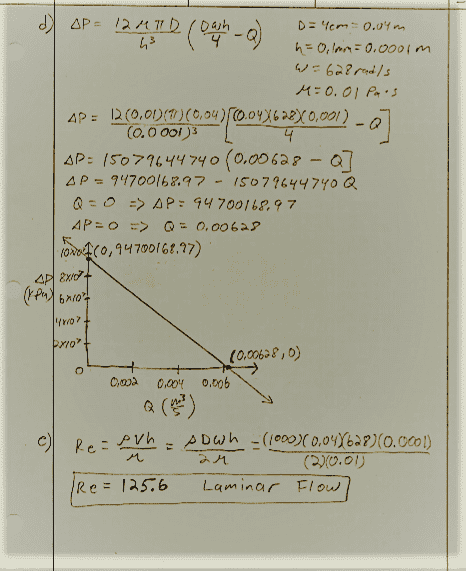 d) ΔP = 12μπD / h³ (Dωh / 4 - Q)
D = 4cm = 0.04m
h = 0,1mm = 0.0001 m
ω = 628 rad/s
μ = 0.01 Pa·s
ΔP = 12(0.01)(π)(0.04) / (0.0001)³ [(0.04)(628)(0.001) / 4 - Q]
ΔP = 15079644740 (0.00628 - Q]
ΔP = 94700168.97 - 15079644740 Q
Q = 0 => ΔP = 94700168.97
ΔP = 0 => Q = 0.00628
(0, 94700168.97)
ΔP
(kPa)
8x10⁷
6x10⁷
4x10⁷
2x10⁷
0
0.002 0.004 0.006
(0.00628, 0)
Q (m³/s)
e) Re = ρVh / μ = ρDωh / 2μ = (1000)(0.04)(628)(0.0001) / (2)(0.01)
Re = 125.6 Laminar Flow